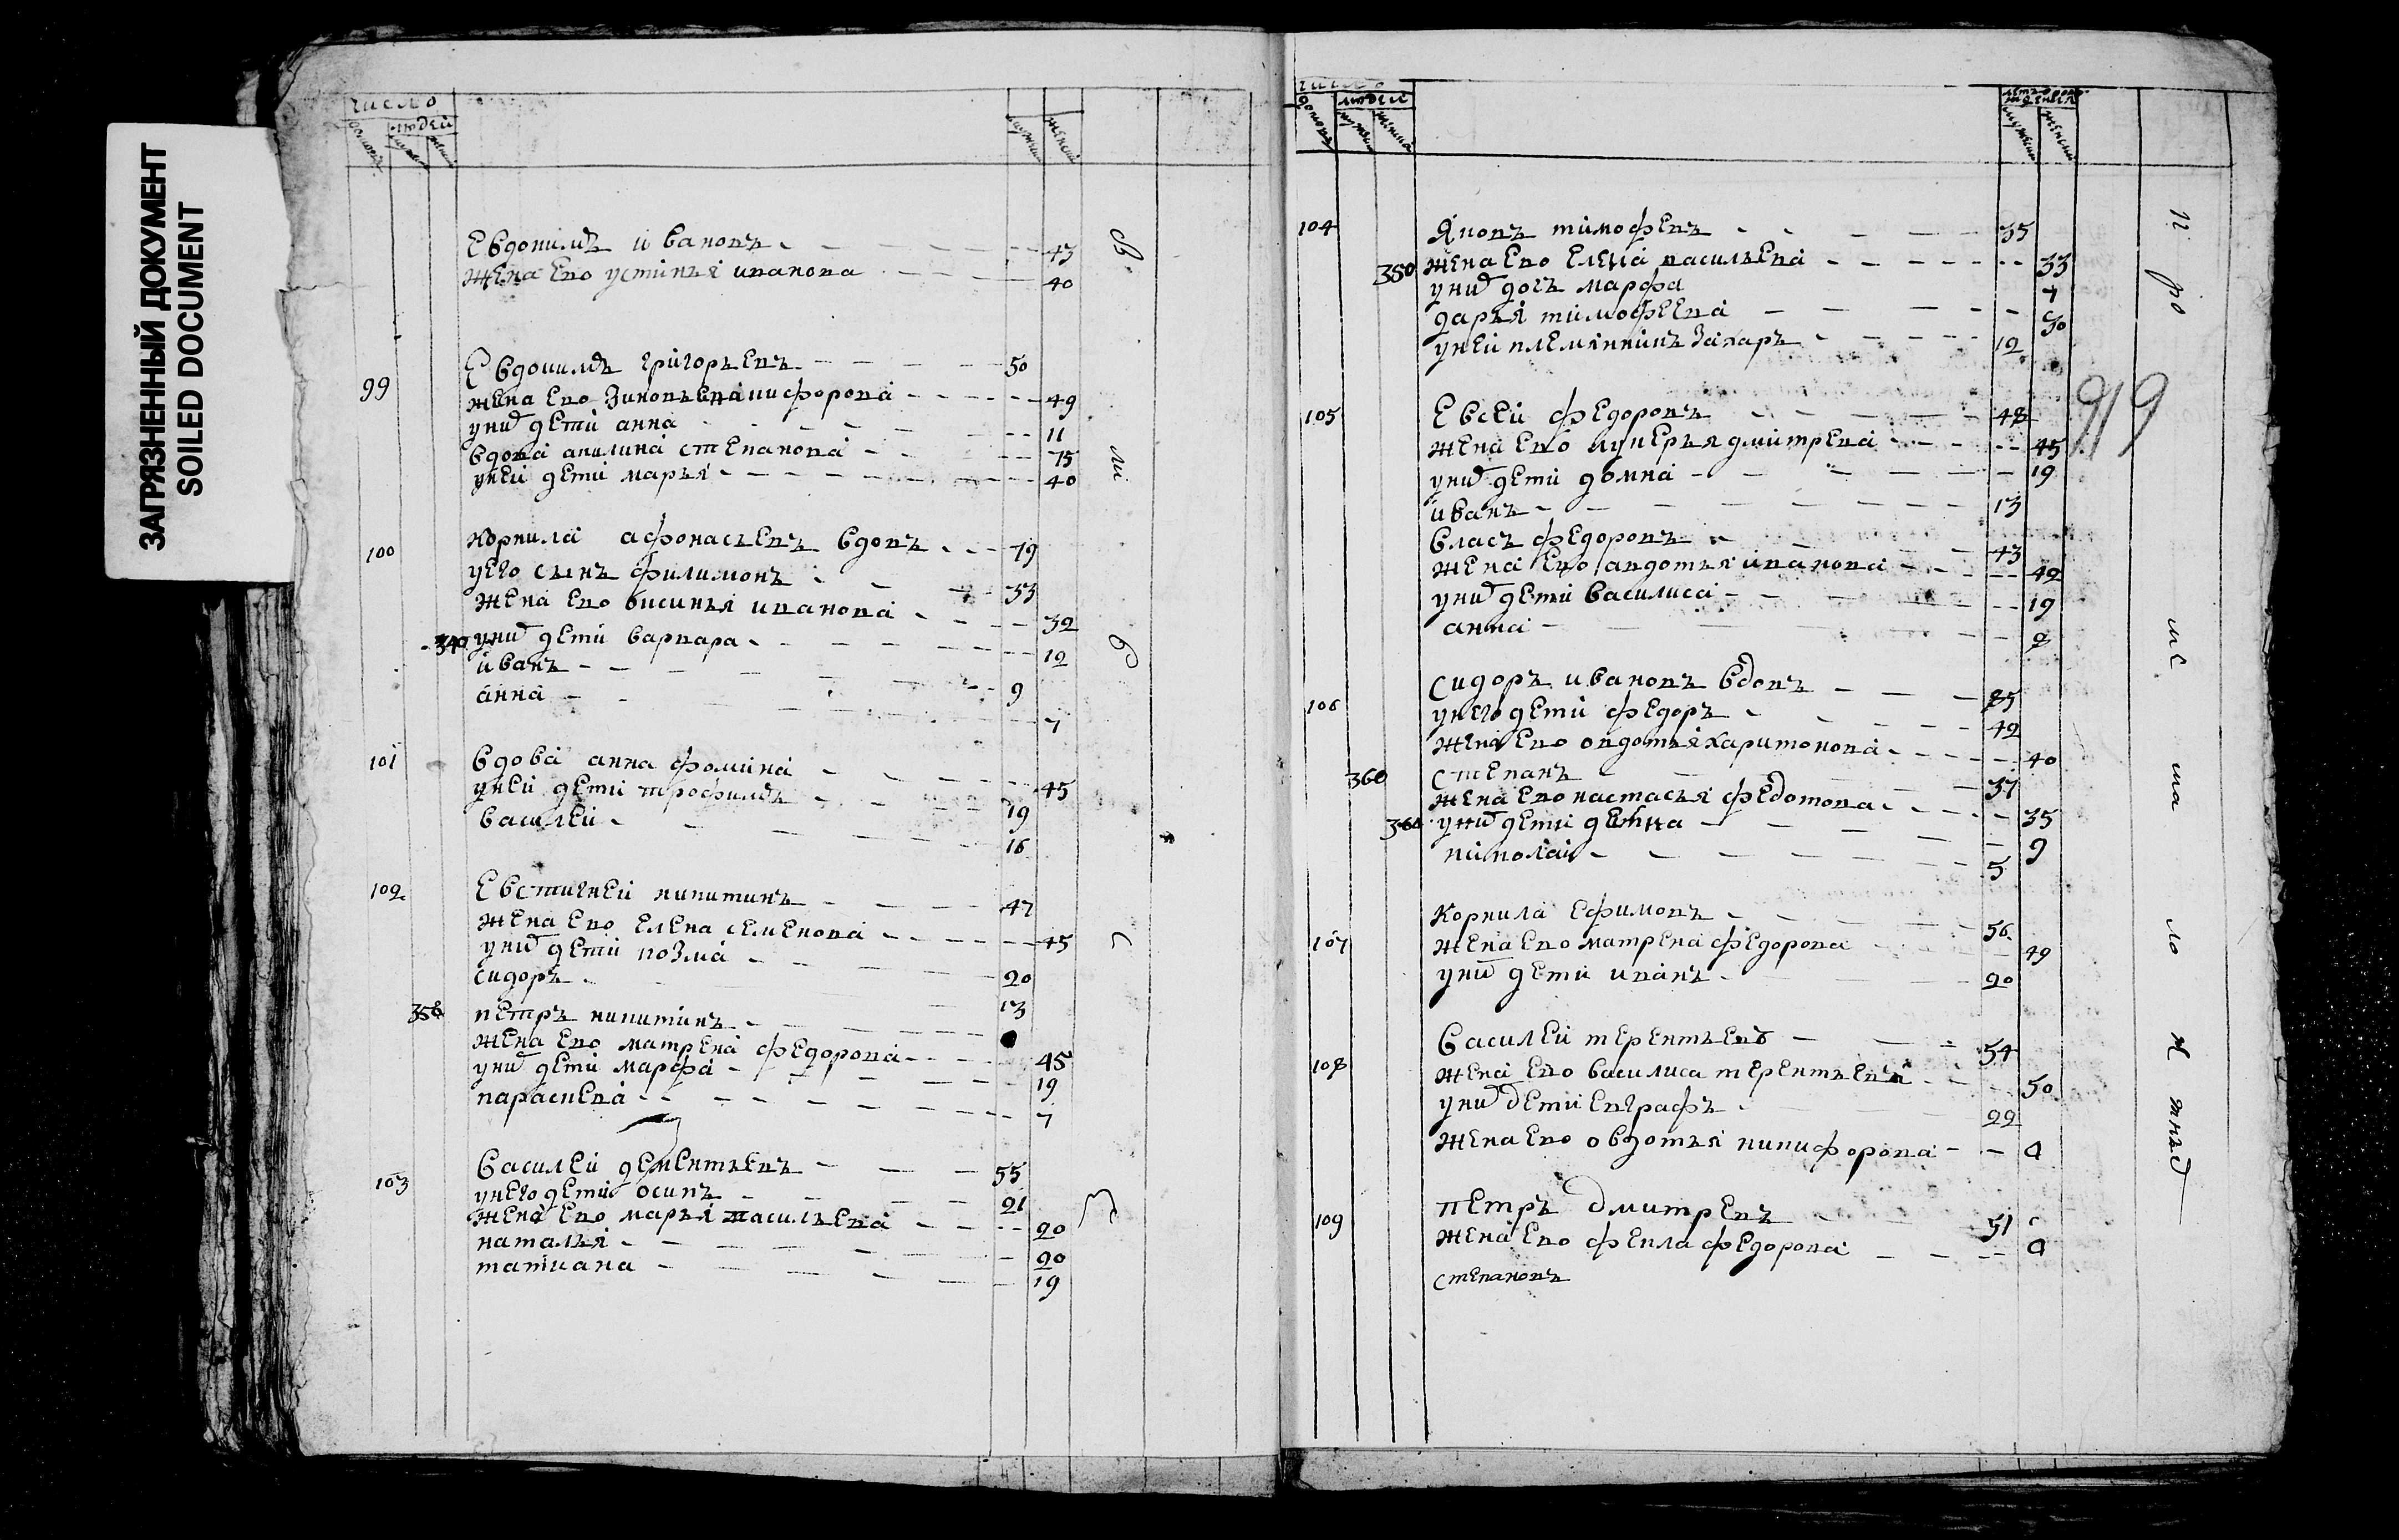 ЗАГРЯЗНЕННЫЙ ДОКУМЕНТ
SOILED DOCUMENT
число
людей
женска
Евдокимъ ивановъ 43
жена ево устинья иванова 40
99 Евдокимъ григорьевъ 50
жена ево никифорова 49
у них дети анна 11
вдова акилина степанова 75
у ней дети марья 40
100 корнила афонасьевъ вдовъ 79
у его сынъ филимонъ 33
жена ево иванова 32
340 у них дети варвара 12
иванъ 9
анна 7
101 вдова анна фомина 45
у ней дети трофимъ 19
василей 16
102 Евстигней никитинъ 47
жена ево елена семенова 45
у них дети козма 20
сидоръ 13
петръ никитинъ
жена ево матрена федорова 45
у них дети марфа 19
парасковa 7
103 василей дементьевъ 55
у него дети осипъ 21
жена ево марья васильева 20
наталья 20
татиана 19
число
людей
104 Яковъ тимофевъ 35
350 жена ево елена васильева 33
у них дочь марфа 7
дарья тимофеева 30
у ней племянникъ захаръ 12
919
105 Евсей федоровъ 48
жена ево лукерья дмитрева 45
у них дети домна 19
иванъ 13
власъ федоровъ 43
жена ево авдотья иванова 42
у них дети василиса 19
анна 8
106 сидоръ ивановъ вдовъ 85
у него дети федоръ 42
жена ево овдотья харитонова 40
360 степанъ 37
жена ево настасья федотова 35
360 у них дети 9
николай 5
107 корнила ефимовъ 56
жена ево матрена федорова 49
у них дети иванъ 20
108 василей терентьевъ 54
жена ево василиса терентьева 50
у них дети евграфъ 22
жена ево овдотья никифорова
109 петръ дмитревъ 51
жена ево фекла федорова
степановъ